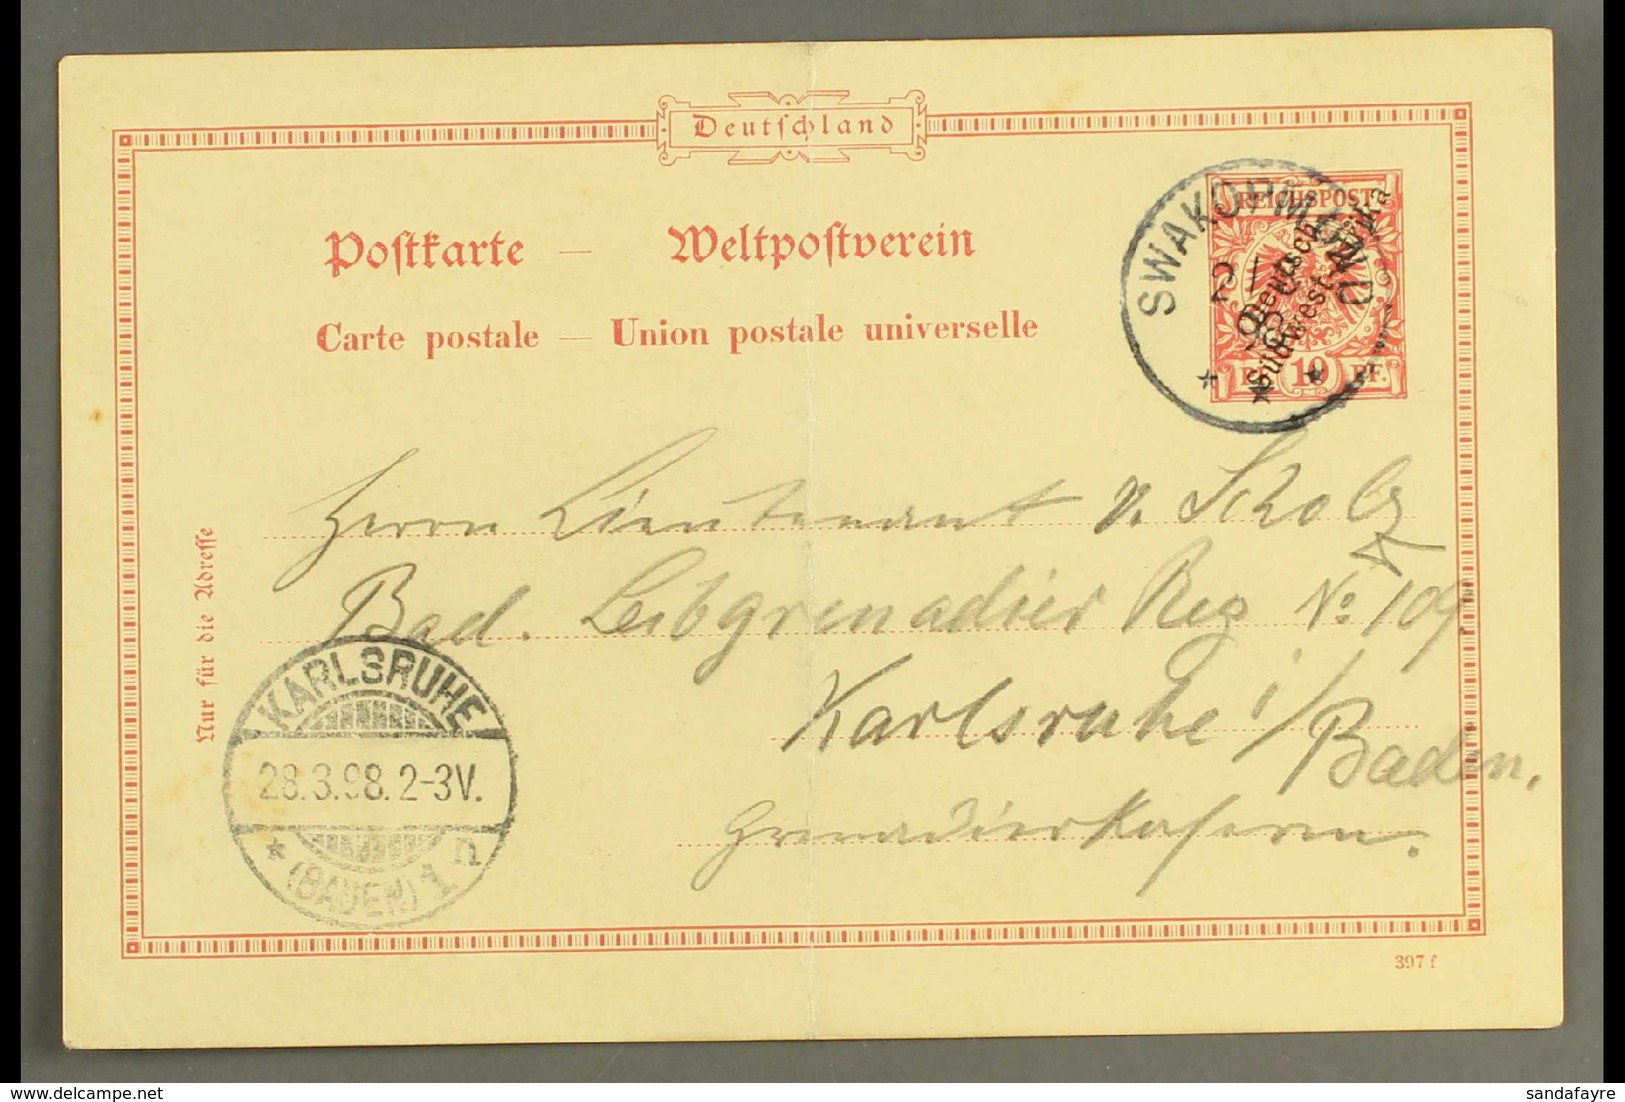 Deutſchland
Poſtkarte — Weltpoſtverein
Carte postale — Union postale universelle
REICHSPOST
SWAKOPMUND
Deutsch-
Südwest-Afrika
10 PF.
Herrn Lieutenant v. Scholz
Bad. Leibgrenadier Reg No 109.
Karlsruhe i/Baden.
Grenadierkaserne.
Nur für die Adreſſe
KARLSRUHE
28.3.98.2-3V.
(BADEN) 1 n
397 f
delcampe.net
sandafayre